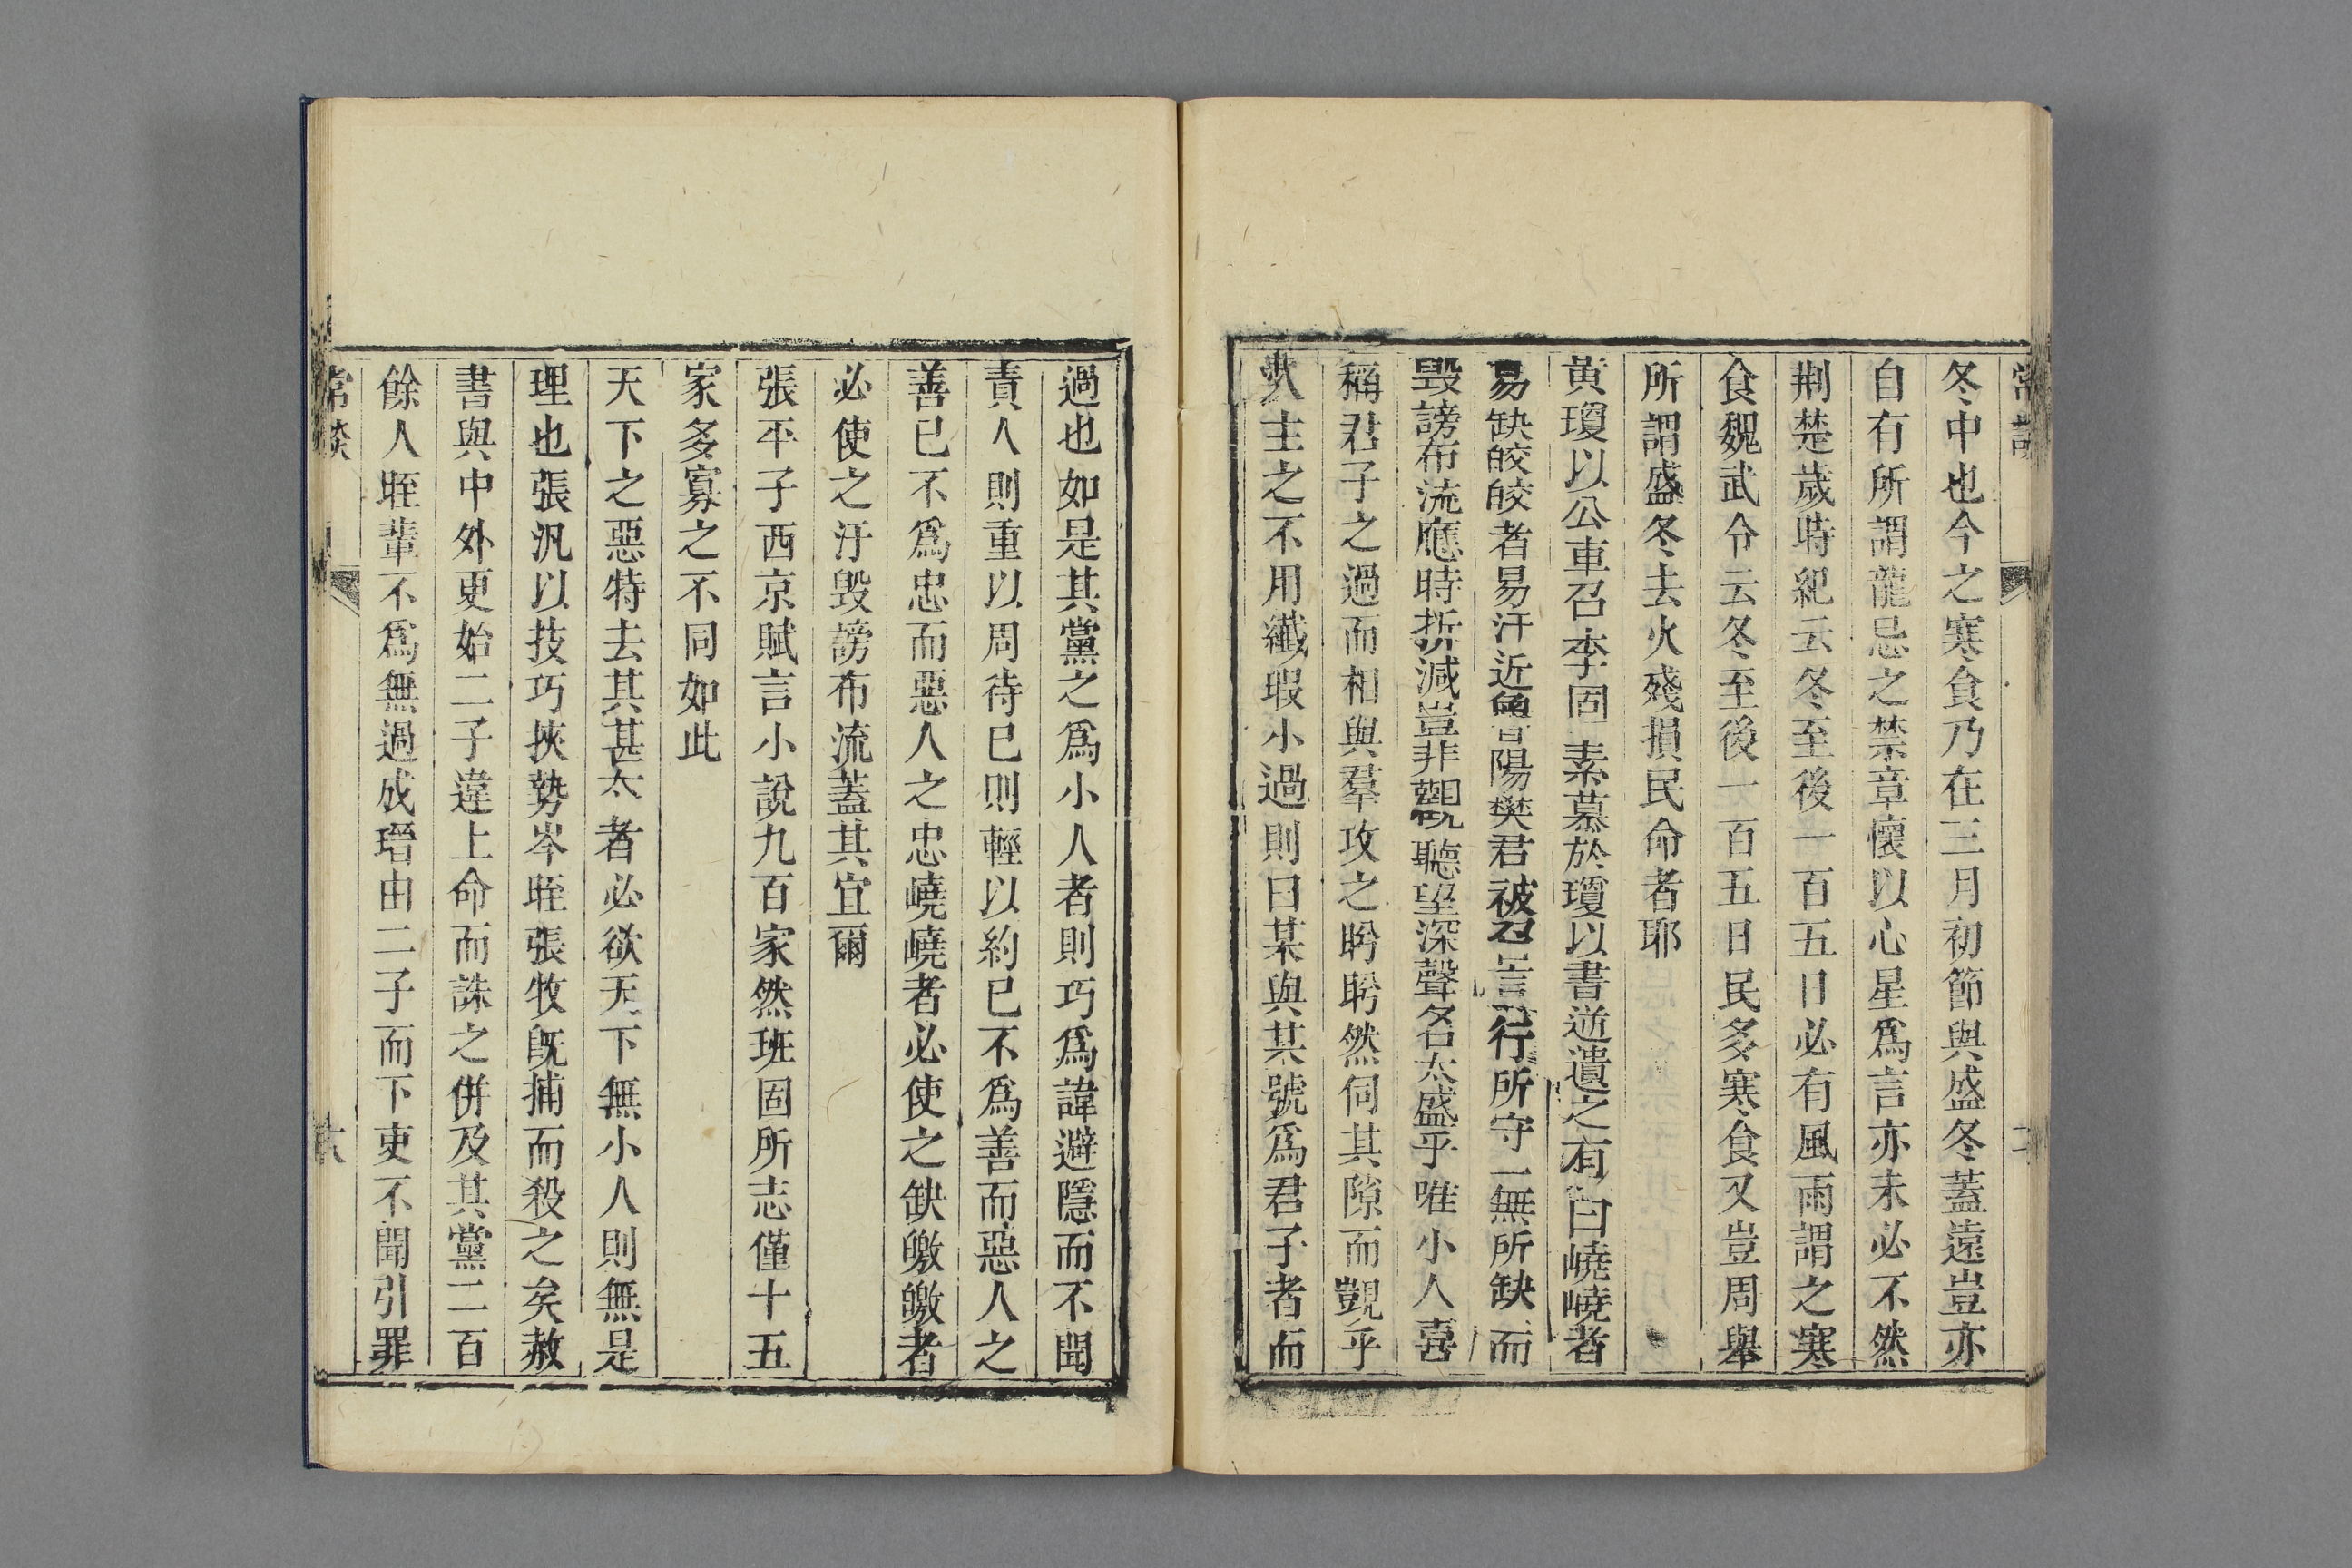 冬中也今之寒食乃在三月初節與盛冬蓋遠豈亦
自有所謂龍忌之禁章懷以心星爲言亦未必不然
荆楚歲時紀云冬至後一百五日必有風雨謂之寒
食魏武令云冬至後一百五日民多寒食又豈周舉
所謂盛冬去火殘損民命者耶
黄瓊以公車召李固素慕於瓊以書逆遺之有曰嶢嶢者
易缺皎皎者易汙近魯陽樊君被召言行所守一無所缺而
毀謗布流應時折減豈非觀聽望深聲名太盛乎唯小人喜
稱君子之過而相與羣攻之盻盻然伺其隙而覬乎
人主之不用纖瑕小過則曰某與某號爲君子者而
過也如是其黨之爲小人者則巧爲諱避隱而不聞
責人則重以周待已則輕以約已不爲善而惡人之
善已不爲忠而惡人之忠嶢嶢者必使之缺皦皦者
必使之汙毁謗布流蓋其宜爾
張平子西京賦言小說九百家然班固所志僅十五
家多寡之不同如此
天下之惡特去其甚太者必欲天下無小人則無是
理也張汎以技巧挾勢岑晊張牧旣捕而殺之矣赦
書與中外更始二子違上命而誅之併及其黨二百
餘人晊輩不爲無過成瑨由二子而下吏不聞引罪
常談